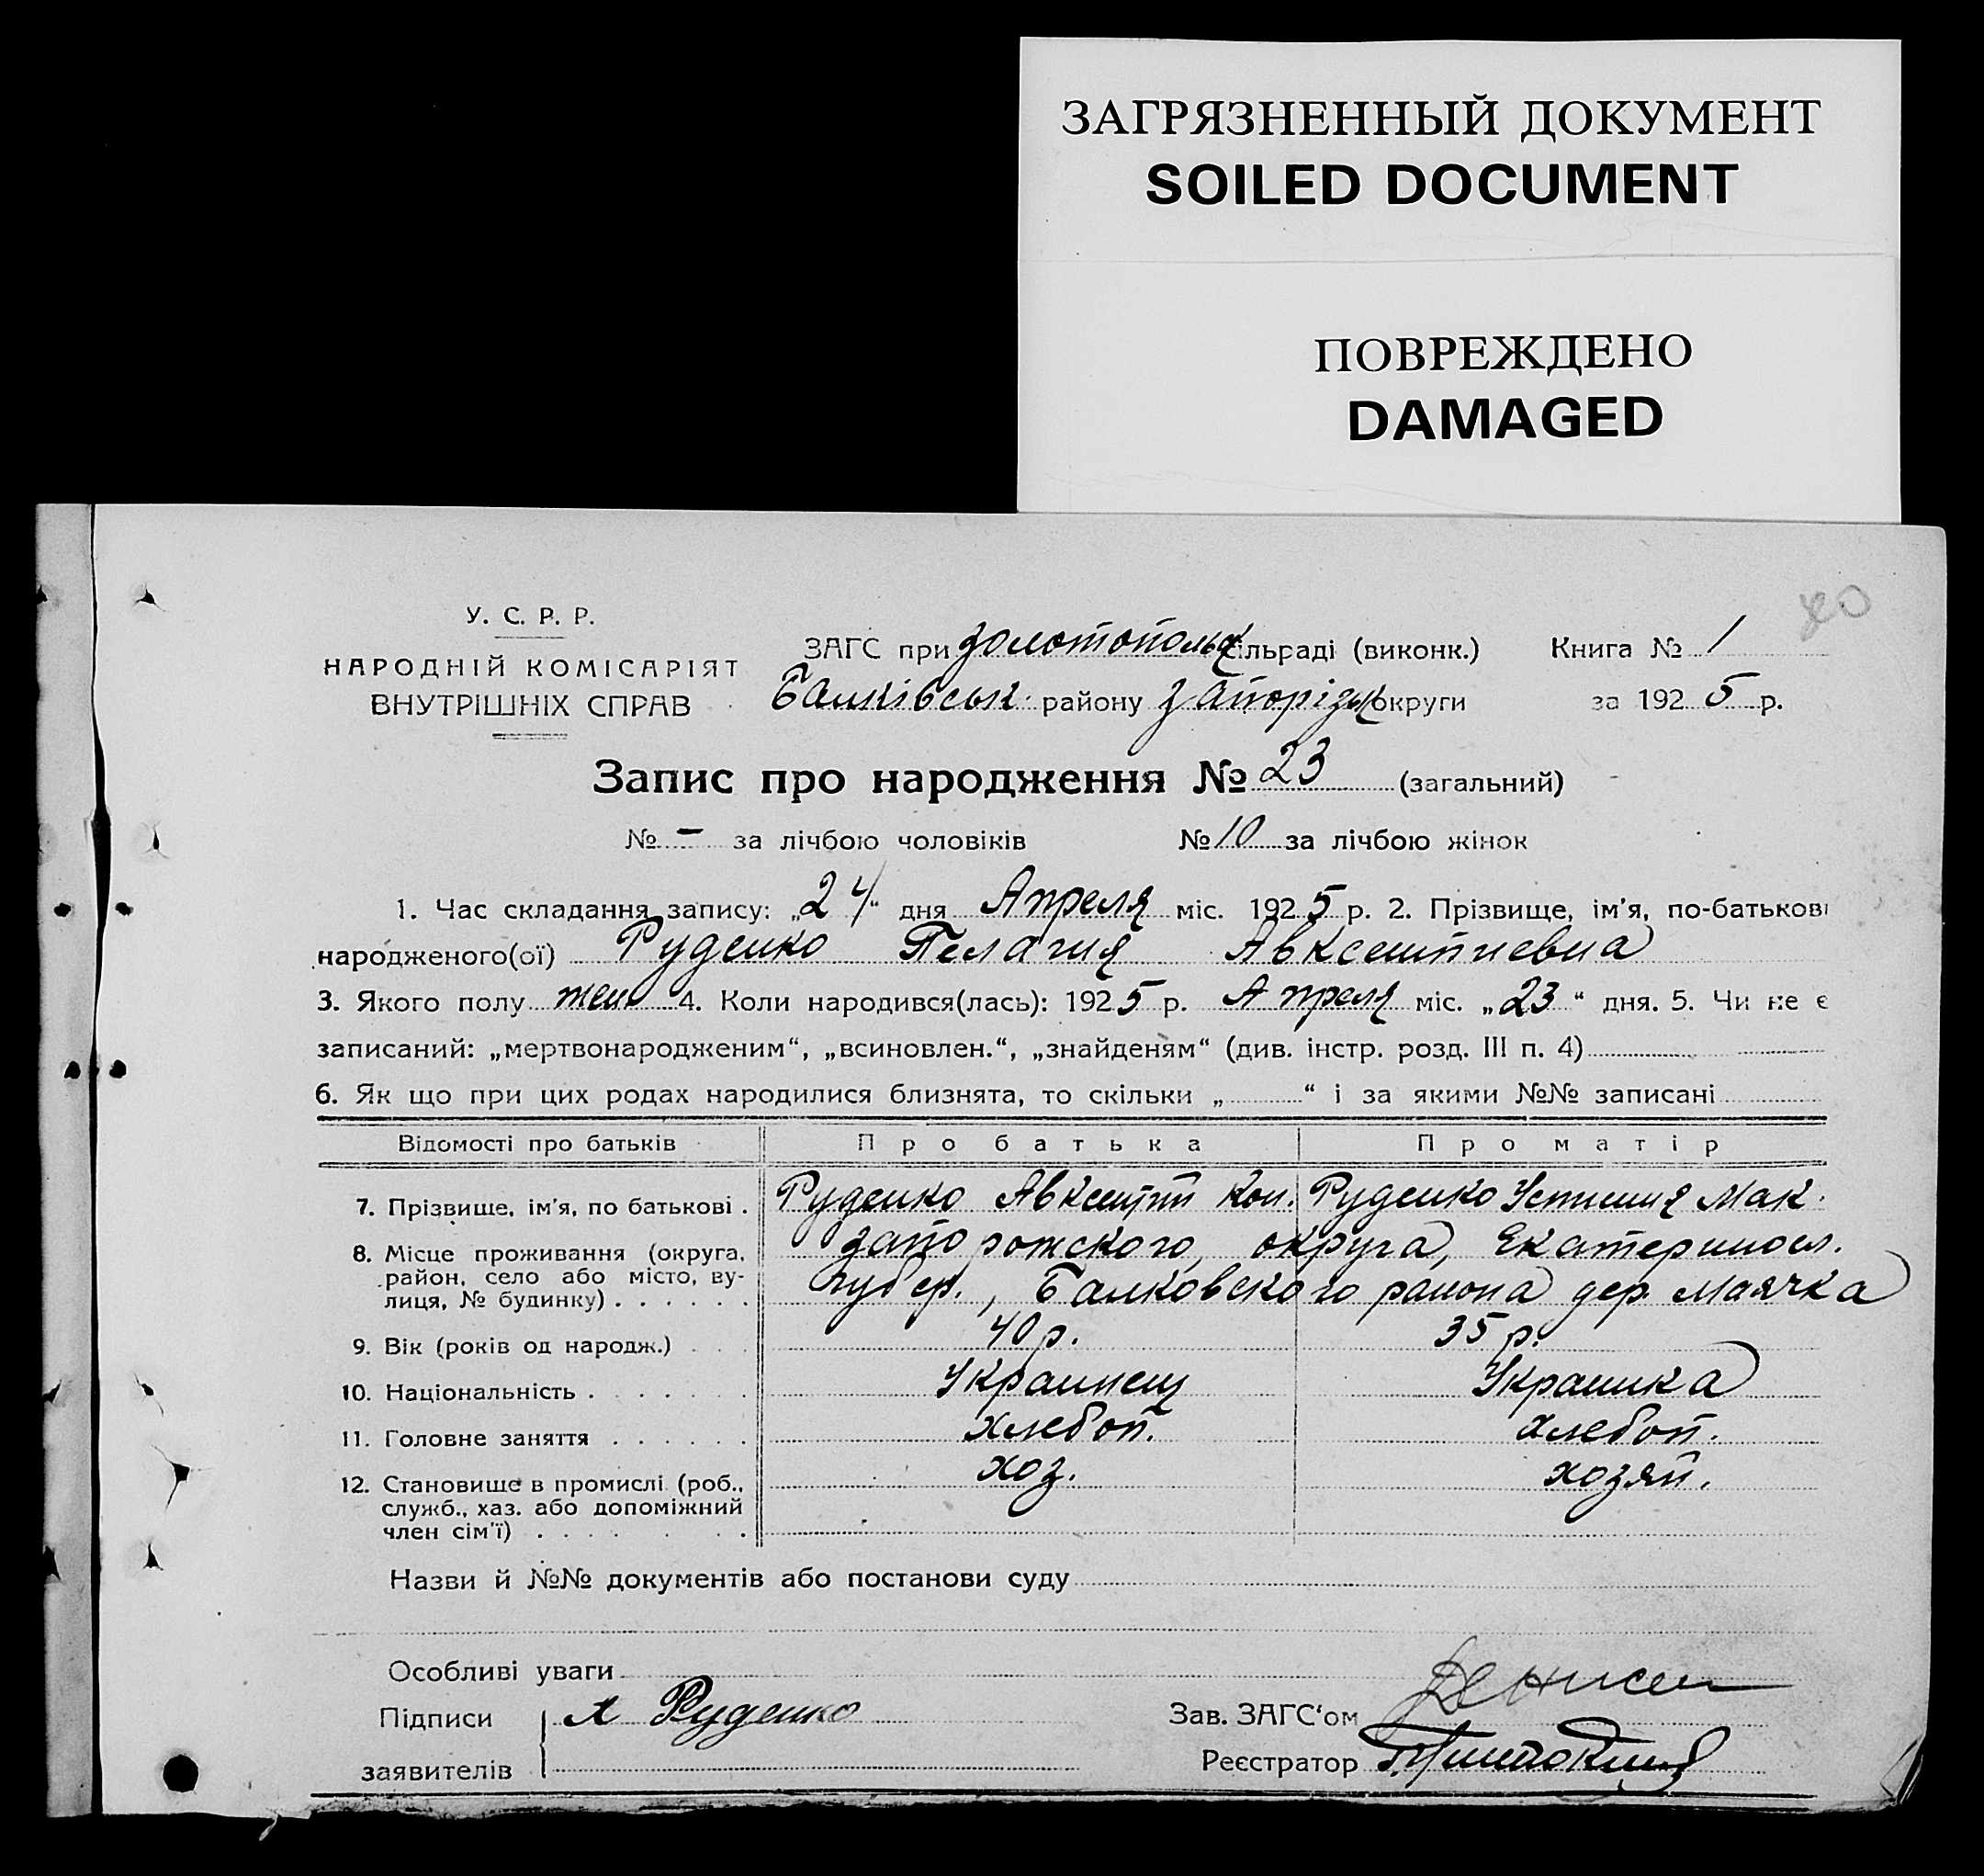 ЗАГРЯЗНЕННЫЙ ДОКУМЕНТ
SOILED DOCUMENT
ПОВРЕЖДЕНО
DAMAGED
80
У. С. Р. Р.
НАРОДНІЙ КОМІСАРІЯТ
ВНУТРІШНІХ СПРАВ
ЗАГС при Золотопольск сільраді (виконк.) Книга № 1
Балківськ. району Запорізьк округи за 1925 р.
Запис про народження № 23 (загальний)
№ – за лічбою чоловіків № 10 за лічбою жінок
1. Час складання запису: „24“ дня Апреля міс. 1925 р. 2. Прізвище, ім'я, по-батькові
народженого(ої) Руденко Пелагия Авксентиевна
3. Якого полу жен 4. Коли народився(лась): 1925 р. Апреля міс. „23“ дня. 5. Чи не є
записаний: „мертвонародженим“, „всиновлен.“, „знайденям“ (див. інстр. розд. III п. 4)
6. Як що при цих родах народилися близнята, то скільки „ “ і за якими №№ записані
Відомості про батьків Про батька Про матір
7. Прізвище, ім'я, по батькові . Руденко Авксентий Кон. Руденко Устиния Мак.
8. Місце проживання (округа, район, село або місто, вулиця, № будинку) . . . . . . Запорожского, округа, Екатериносл.
губер., Балковского района дер. Маячка
9. Вік (років од народж.) . . . 40 р. 35 р.
10. Національність . . . . . . . Украинец Украинка
11. Головне заняття . . . . . . хлебоп. хлебоп.
12. Становище в промислі (роб., служб., хаз. або допоміжний член сім'ї) . . . . . . . хоз. хозяй.
Назви й №№ документів або постанови суду
Особливі уваги
Підписи заявителів А Руденко
Зав. ЗАГС'ом Денисен
Реєстратор